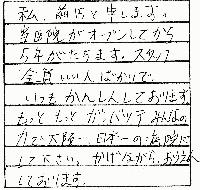 私、前田と申します。
当医院がオープンしてから
5年がたちます。スタッフ
全員いい人ばかりで、
いつもかんしんしております
もっともっとガンバッテみんなの
力で大阪一、日本一の医院に
して下さい。かげながら、お
しております。